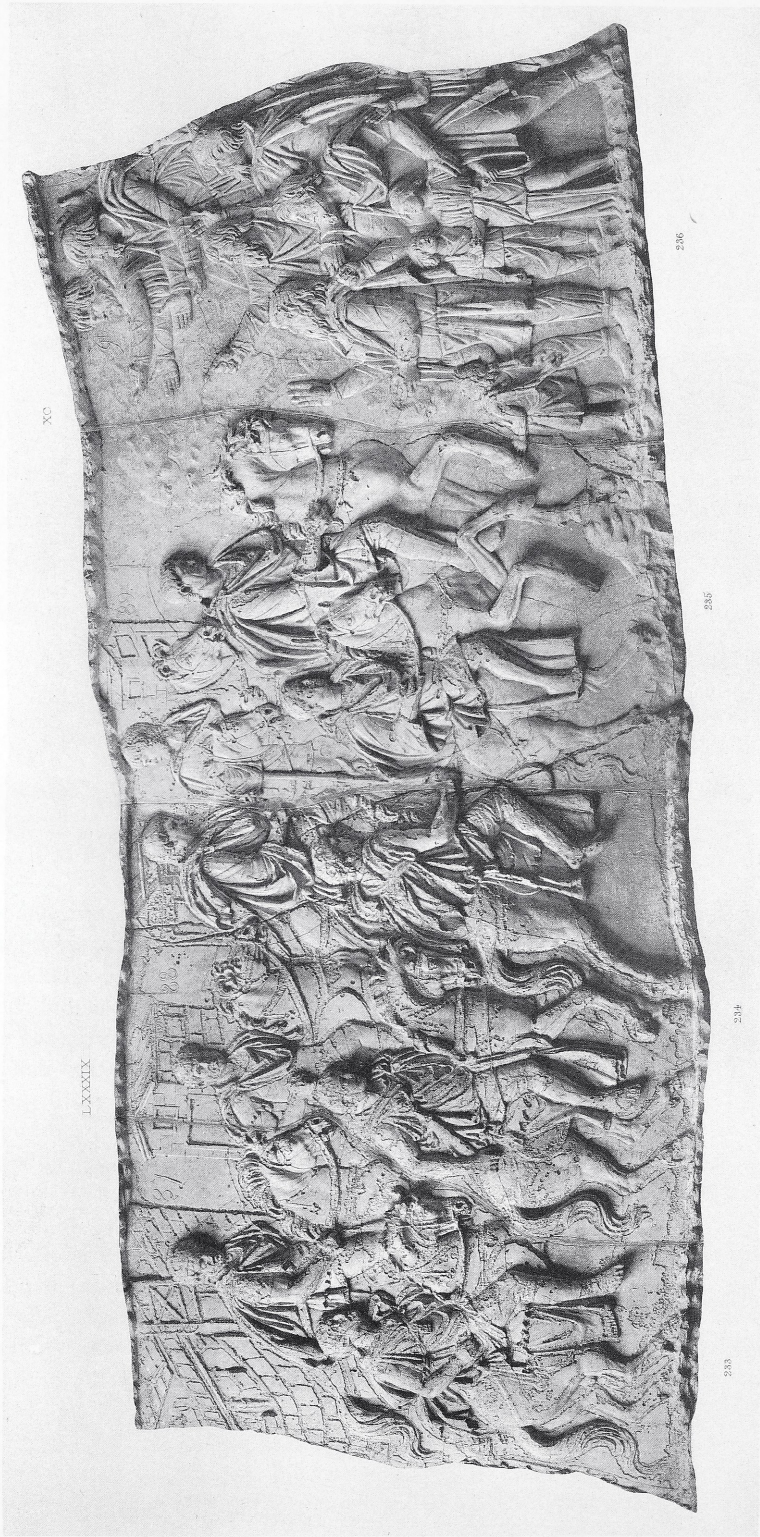 LXXXIX XC
88
233 234 235 236